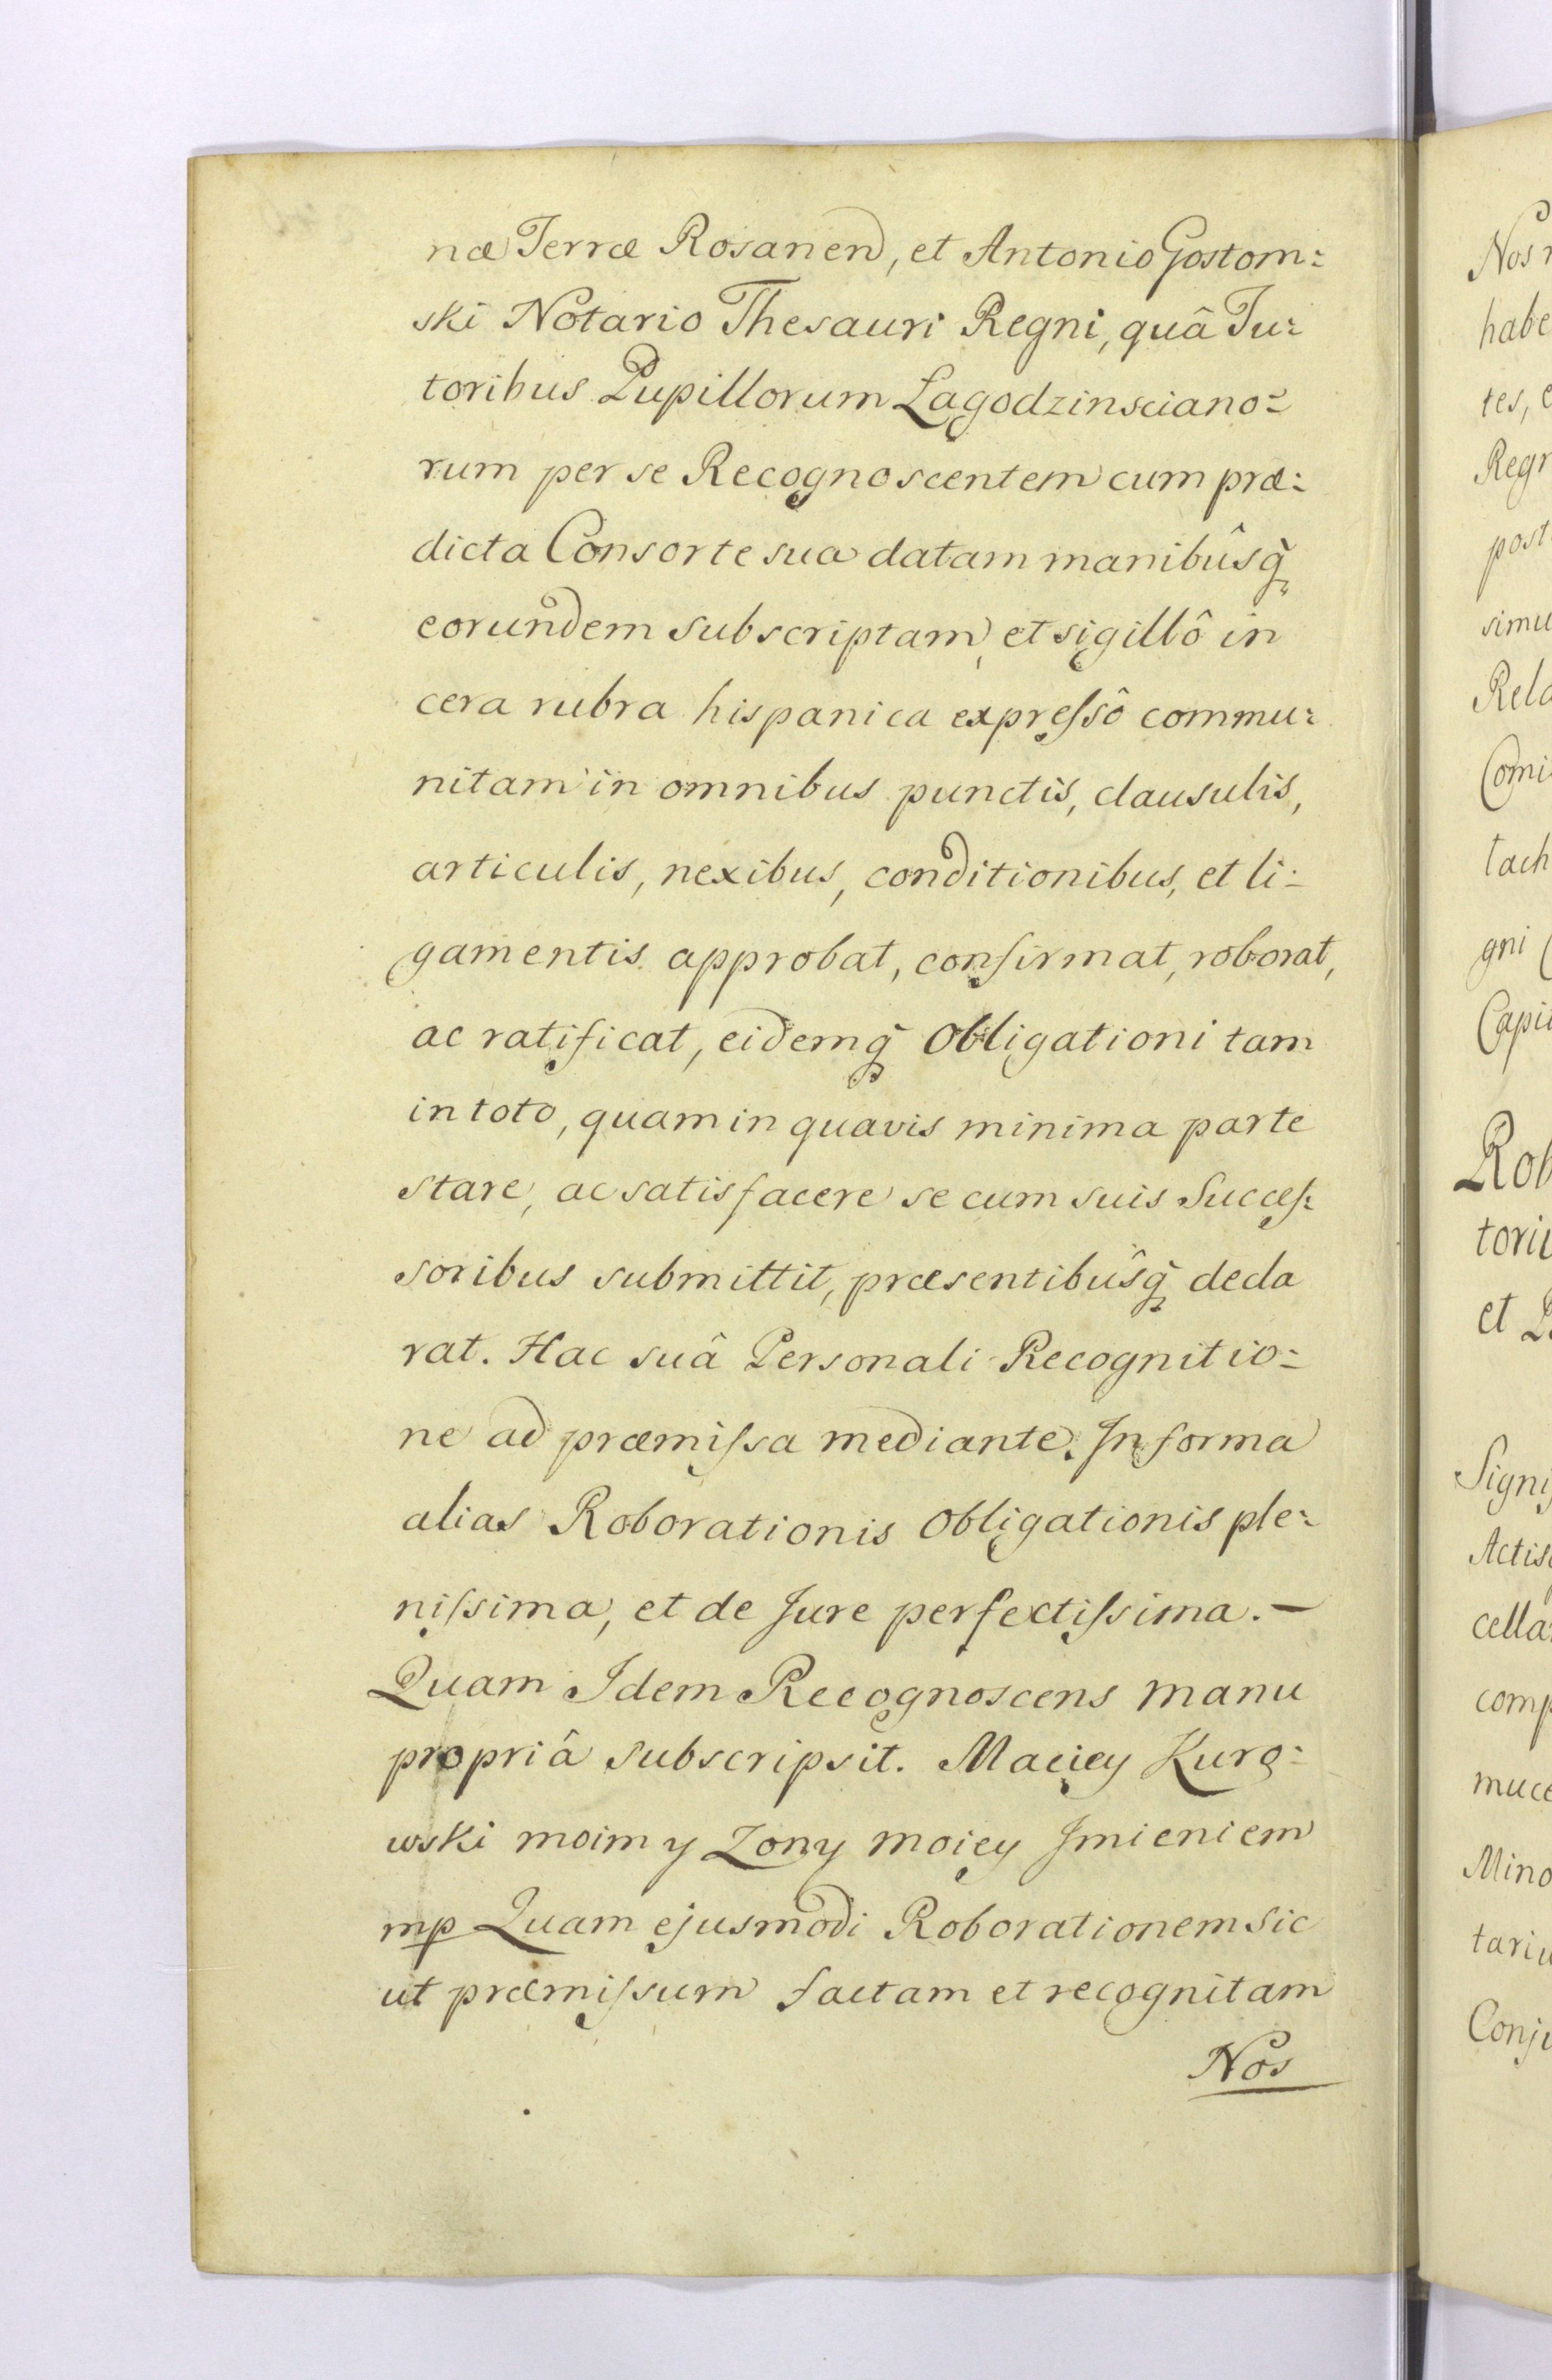 næ Terræ Rosanen, et Antonio Gostom:
ski Notario Thesauri Regni, quâ Tu:
toribus Pupillorum Lagodzinsciano:
rum per se Recognoscentem cum præ:
dicta Consorte sua datam manibûsq̀
eorundem subscriptam, et sigillô in
cera rubra hispanica expreſsô commu:
nitam in omnibus punctis, clausulis,
articulis, nexibus, conditionibus, et li:
gamentis approbat, confirmat, roborat,
ac ratificat, eidemq̀ Obligationi tam
in toto, quam in quavis minima parte
stare, ac satisfacere se cum suis Succeſ:
soribus submittit, præsentibûsq̀ decla
rat. Hac suâ Personali Recognitio:
ne ad præmiſsa mediante. In forma
alias Roborationis Obligationis ple:
niſsima, et de Jure perfectiſsima. —
Quam Idem Recognoscens manu
propriâ subscripsit. Maciey Kuro:
wski moim y Zony moiey Jmieniem
mp Quam ejusmodi Roborationem sic
ut præmiſsum factam et recognitam
Nos
Nos
habe
tes, e
Regn
post
simu
Rela
Comi
tach
gni
Capi
Rob
torii
et
Signi
Actis
cella
comp
muce
Mino
tariu
Conju